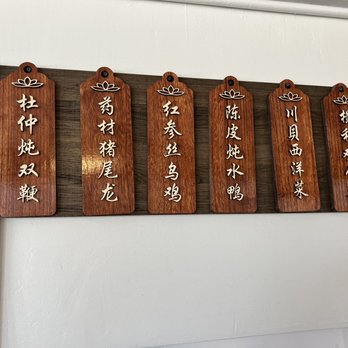 杜仲炖双鞭
药材猪尾龙
红参丝乌鸡
陈皮炖水鸭
川贝西洋菜